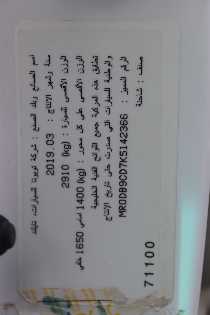 اسم الصانع وبلد الصنع : شركة تويوتا للسيارات، تايلاند
سنة وشهر الإنتاج : 2019.03
الوزن الأقصى للمركبة : (kg) 2910
الوزن الأقصى على كل محور : (kg) 1400 أمامي 1650 خلفي
تطابق هذه المركبة جميع اللوائح الفنية الخليجية
والوطنية للسيارات التي صدرت حتى تاريخ الإنتاج
الرقم المميز : MR0DB9CD7K5142366
صنف : شاحنة
71100